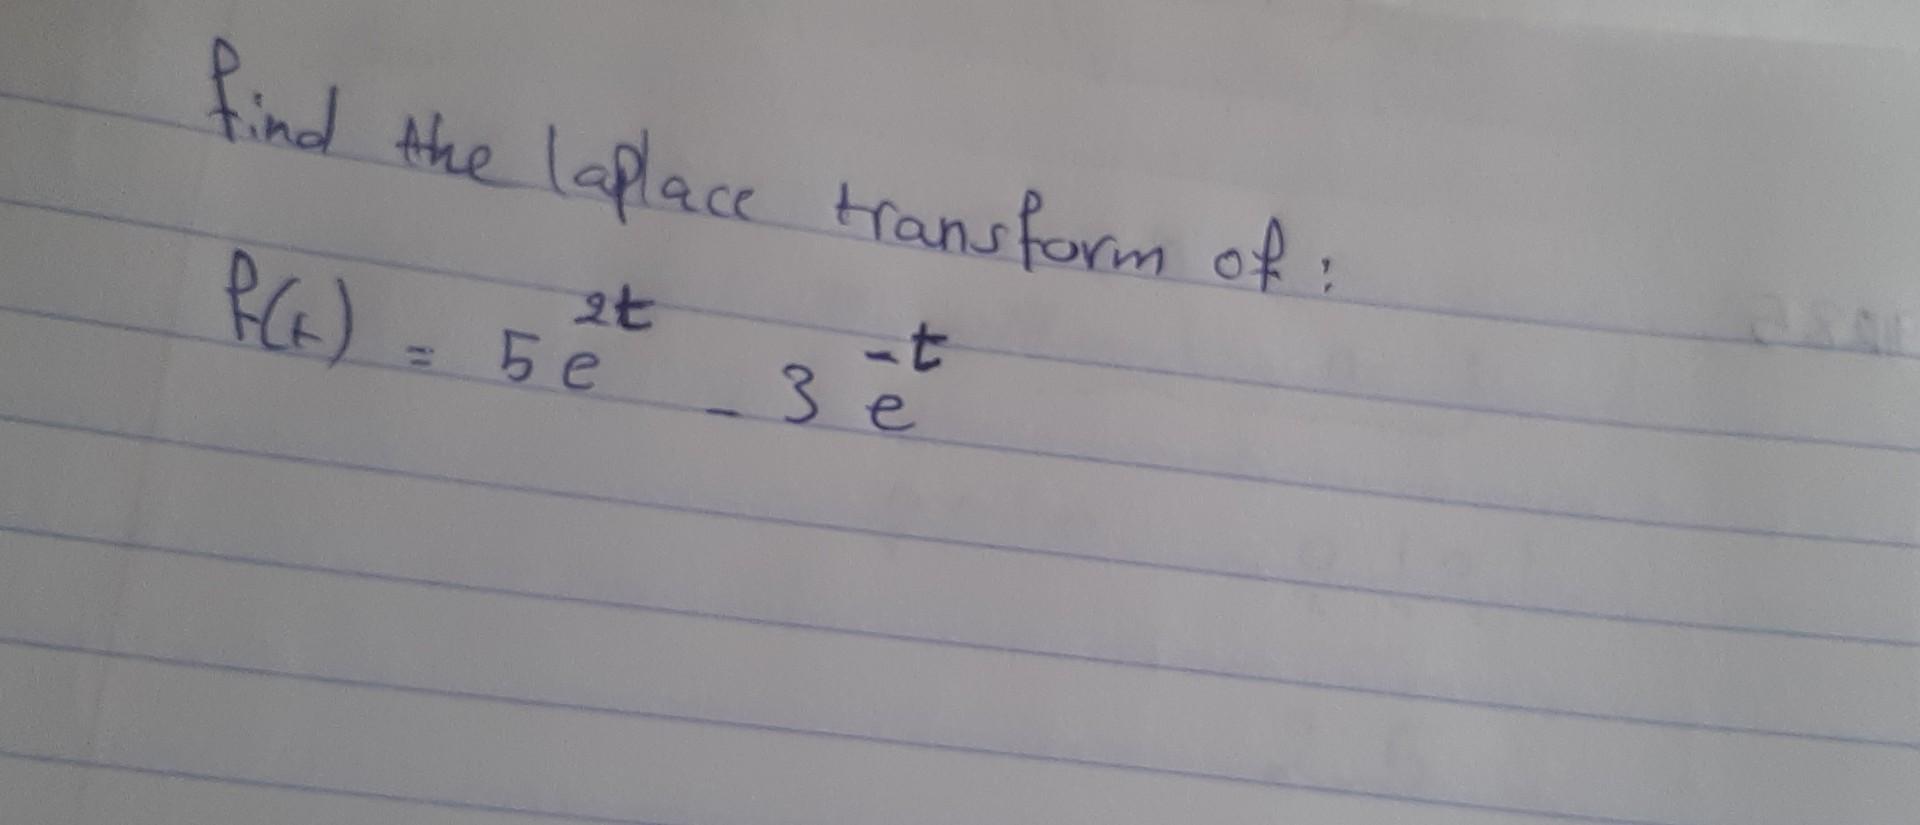 find the laplace transform of:
f(t) = 5e^{2t} - 3e^{-t}